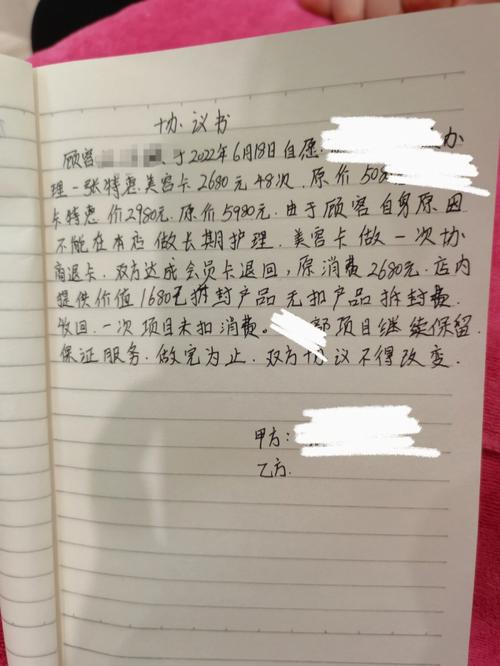 协议书
顾客 于2022年6月18日自愿 办
理一张特惠美容卡2680元48次.原价508
卡特惠价2980元.原价5980元.由于顾客自身原因
不能在本店做长期护理.美容卡做一次协
商退卡.双方达成会员卡退回,原消费2680元.店内
提供价值1680元拆封产品无扣产品拆封费.
收回.一次项目未扣消费。 部项目继续保留.
保证服务.做完为止.双方协议不得改变.
甲方:
乙方.